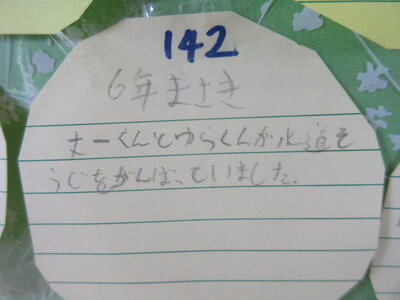 142
6年まさき
たーくんとゆらくんが水道そ
うじをがんばっていました。